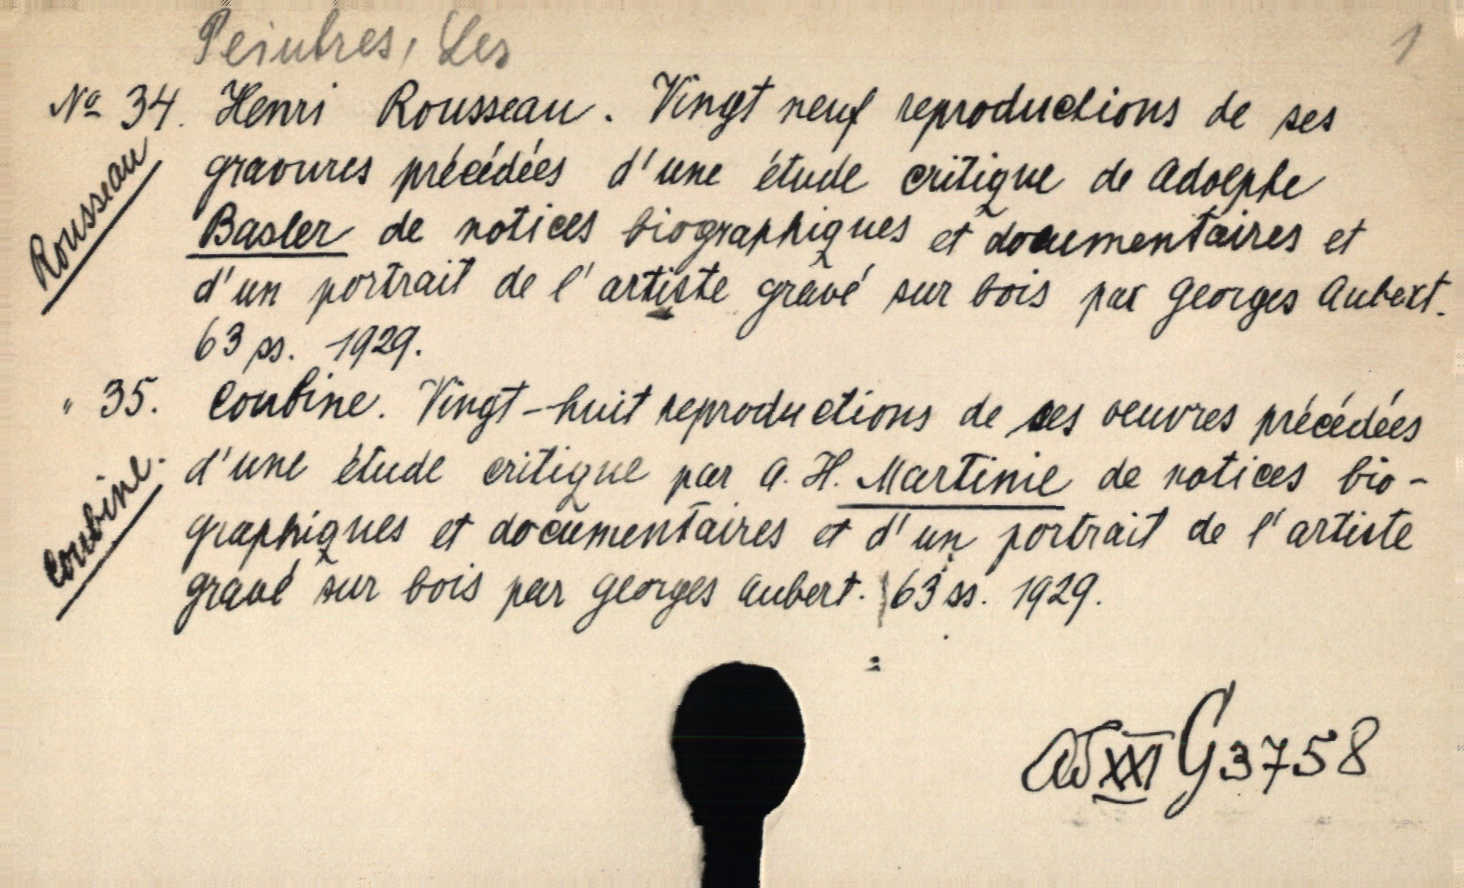 Peintres, Les
1
Nº 34. Henri Rousseau. Vingt neuf reproductions de ses
gravures précédées d'une étude critique de Adolphe
Rousseau
Basler de notices biographiques et documentaires et
d'un portrait de l'artiste gravé sur bois par Georges Aubert.
63 ss. 1929.
" 35. Coubine. Vingt-huit reproductions de ses oeuvres précédées
d'une étude critique par A. H. Martinie de notices bio-
Coubine.
graphiques et documentaires et d'un portrait de l'artiste
gravé sur bois par Georges Aubert. 63 ss. 1929.
XXI G3758